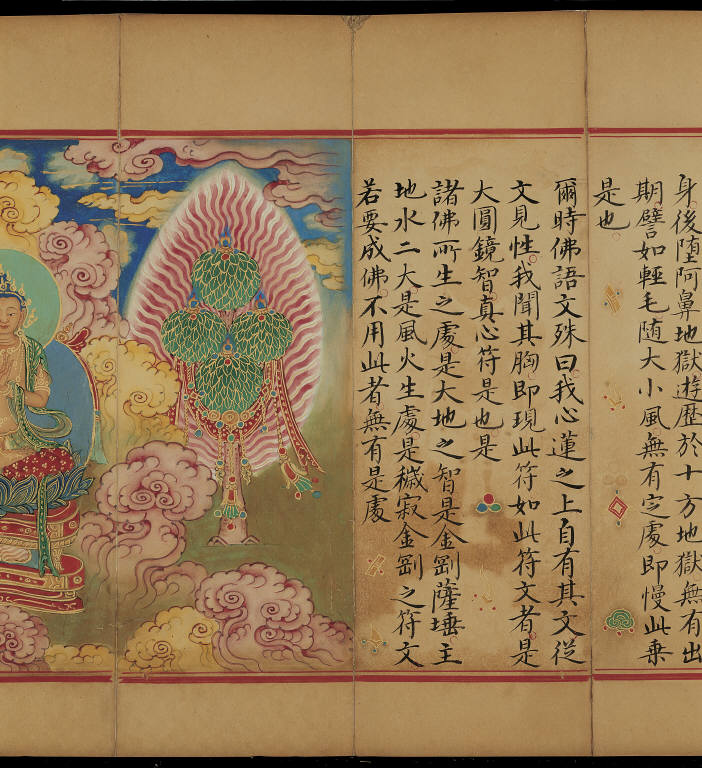 身後墮阿鼻地獄遊歷於十方地獄無有出
期譬如輕毛随大小風無有定處即慢此乗
是也
爾時佛語文殊曰我心蓮之上自有其文從
文見性我聞其胸即現此符如此符文者是
大圓鏡智真心符是也是
諸佛所生之處是大地之智是金劉薩埵主
地水二大是風火生處是穢寂金劉之符文
若要成佛不用此者無有是處